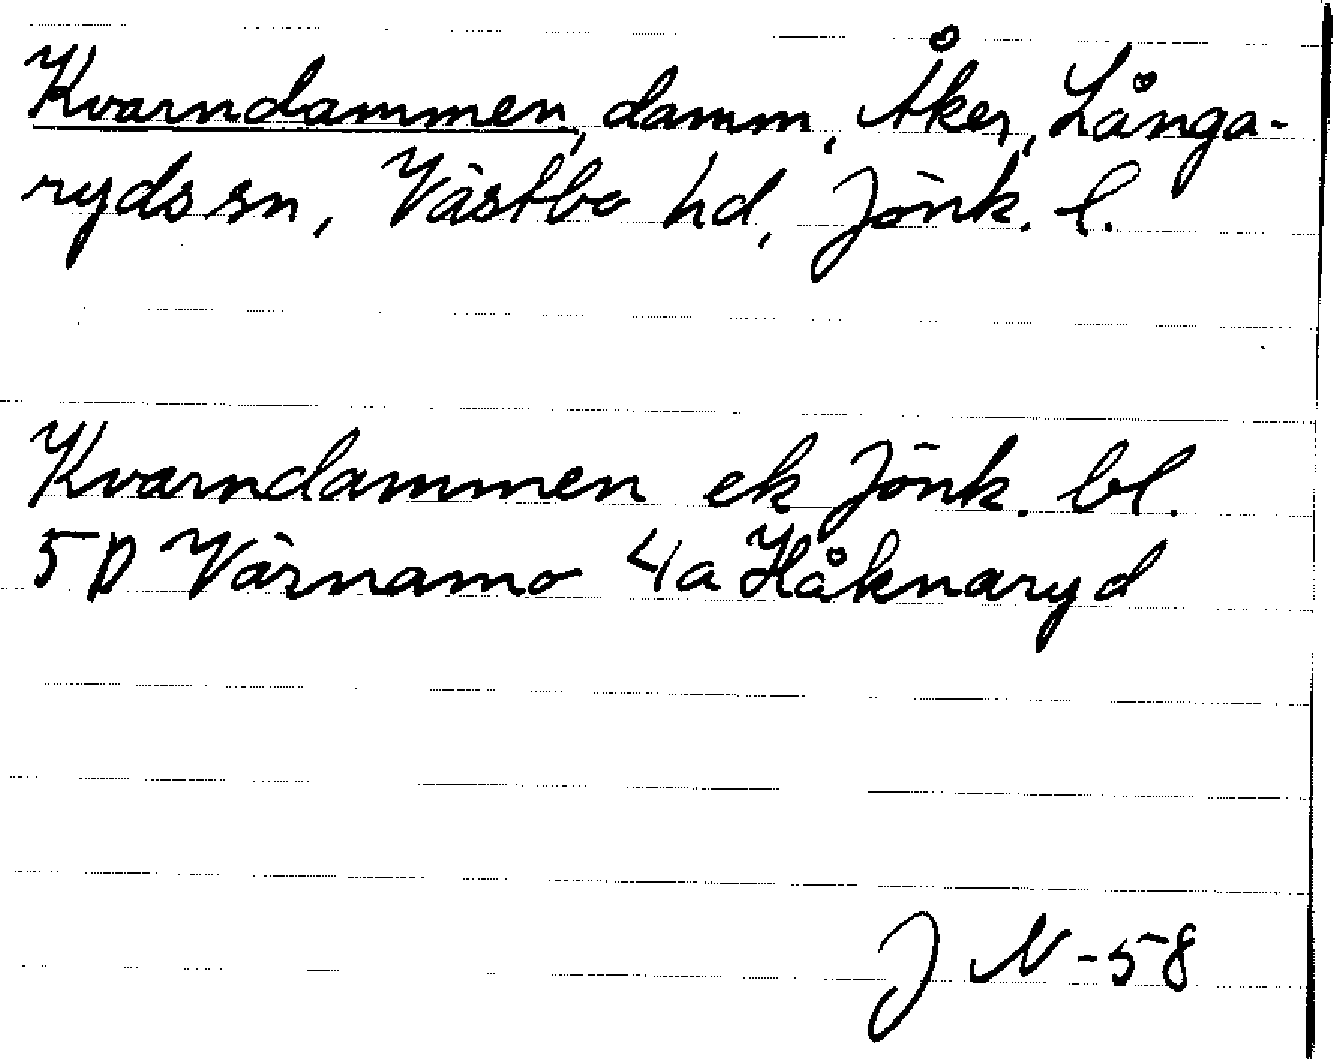 Kvarndammen, damm, Åker, Långa-
ryds sn, Västbo hd, Jönk. l.
Kvarndammen ek Jönk. bl.
5D Värnamo 4a Håknaryd
J N -58